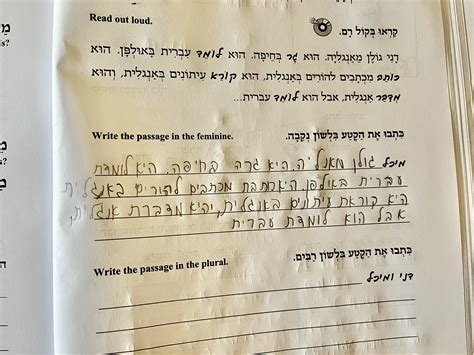 Read out loud. קִרְאוּ בְּקוֹל רָם.
דָנִי גוֹלָן מֵאַנְגְלִיָּה. הוּא גָר בְּחֵיפָה. הוּא לוֹמֵד עִבְרִית בָּאוּלְפָּן. הוּא
כּוֹתֵב מִכְתָּבִים לַהוֹרִים בְּאַנְגְלִית. הוּא קוֹרֵא עִיתוֹנִים בְּאַנְגְלִית, וְהוּא
מְדַבֵּר אַנְגְלִית, אֲבָל הוּא לוֹמֵד עִבְרִית...
Write the passage in the feminine. כִּתְבוּ אֶת הַקֶּטַע בִּלְשׁוֹן נְקֵבָה.
מיכל גולן מאנגליה. היא גרה בחיפה. היא לומדת
עברית באולפן. היא כותבת מכתבים להורים באנגלית
היא קוראת עיתונים באנגלית, והיא מדברת אנגלית,
אבל הוא לומדת עברית
Write the passage in the plural. כִּתְבוּ אֶת הַקֶּטַע בִּלְשׁוֹן רַבִּים.
דני ומיכל